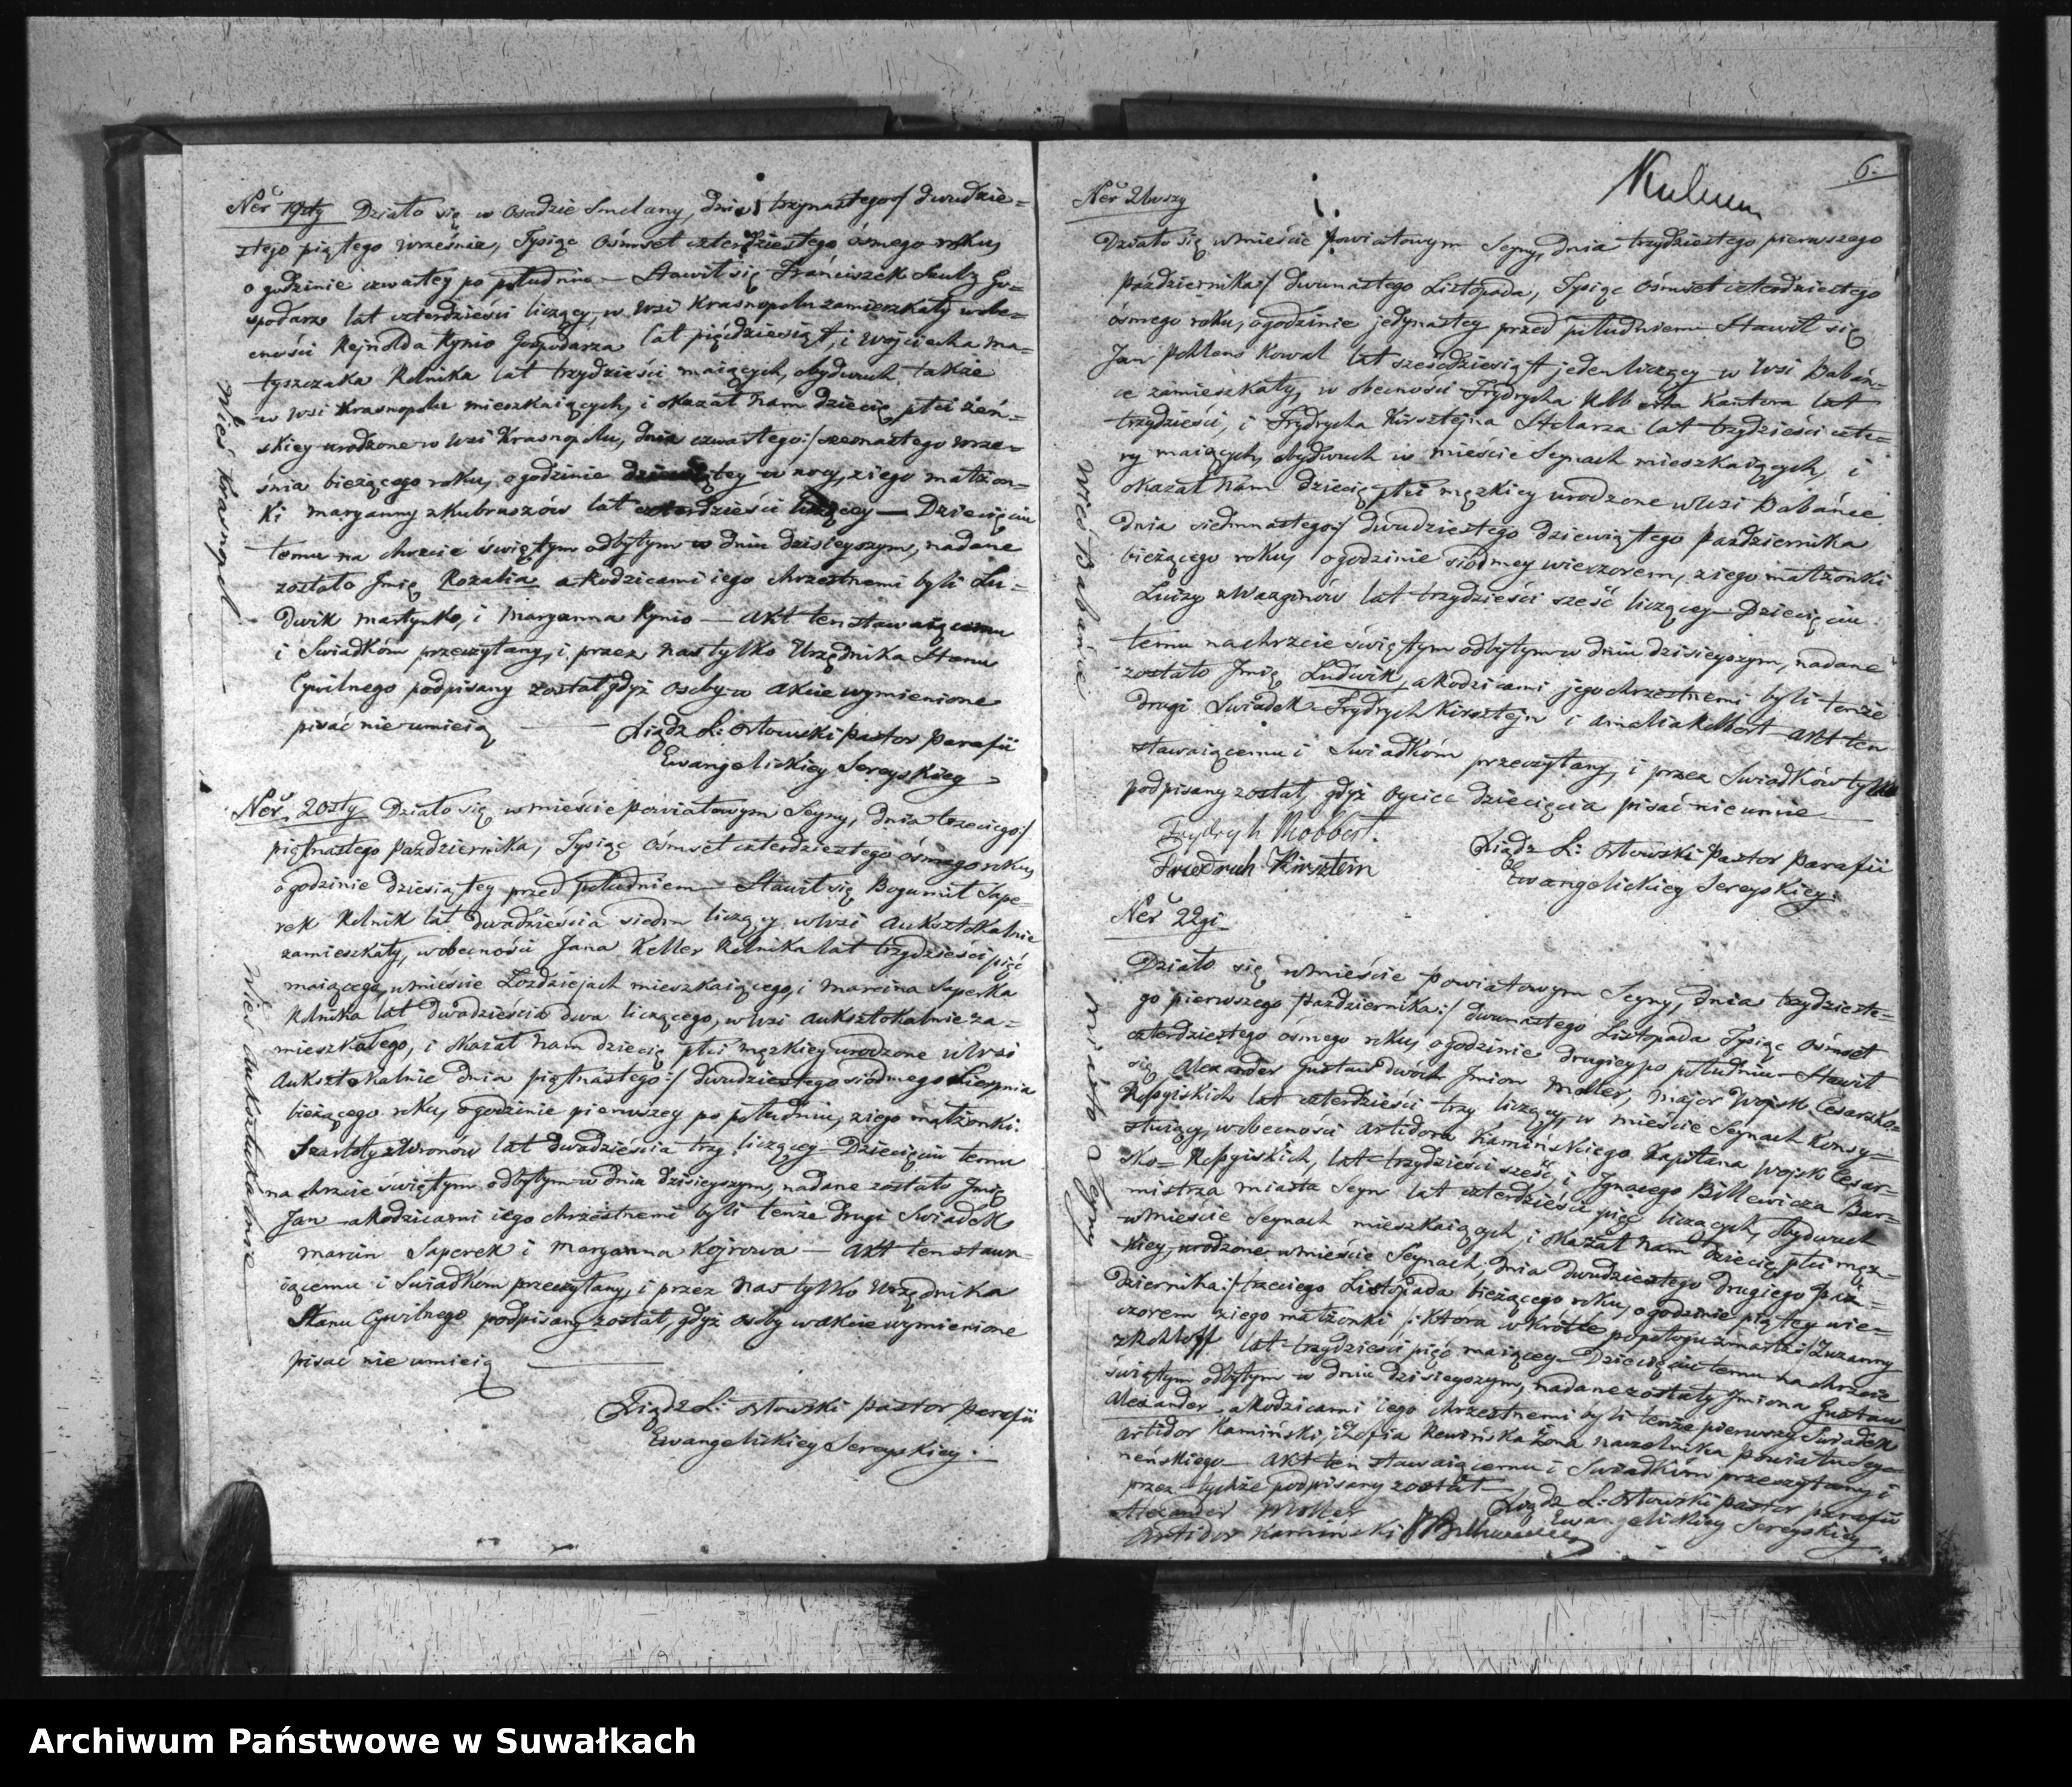 Ner 19sty Działo się w Osadzie Smolany, dnia trzynastego/ dwudzie=
stego piątego Września, Tysiąc Ośmset czterdziestego ósmego roku,
o godzinie czwartey po południu — Stawił się Franciszek Szulz Go=
spodarz lat czterdzieści liczący, w Wsi Krasnopolu zamieszkały w obe=
cności Rejnolda Kynio Gospodarza lat pięćdziesiąt, i Wojciecha Ma=
tyszczaka Rolnika lat trzydzieści maiących, obydwuch także
w Wsi Krasnopolu mieszkaiących, i okazał Nam dziecię płci żeń=
skiey urodzone w Wsi Krasnopolu, dnia czwartego:/ szesnastego Wrze=
śnia bieżącego roku, o godzinie w nocy, z iego małżon=
ki Maryanny z Kubruszów lat czterdzieści liczącey — Dziecięciu
temu na chrzcie świętym odbytym w dniu dzisieyszym, nadane
zostało Imię Rozalia a Rodzicami iego chrzestnemi byli Lu=
dwik Martynko, i Maryanna Kynio — Akt ten stawaiącemu
i Świadkóm przeczytany, i przez Nas tylko Urzędnika Stanu
Cywilnego podpisany został gdyż Osoby w Akcie wymienione
pisać nie umieią — Xiądz L: Orłowski Pastor Parafii
Ewangelickiey Sereyskiey
Wieś Krasnopol
Ner. 20sty Działo się w mieście Powiatowym Seyny, dnia trzeciego:/
piętnastego Października, Tysiąc Ośmset czterdziestego ósmego roku,
o godzinie dziesiątey przed południem — Stawił się Bogumił Sape=
rek Rolnik lat dwadzieścia siedm liczący w Wsi Auksztokalnie
zamieszkały, w obecności Jana Keller Rolnika lat trzydzieści pięć
maiącego, w mieście Łozdziejach mieszkaiącego, i Marcina Saperka
Rolnika lat dwadzieścia dwa liczącego, w Wsi Auksztokalnie za=
mieszkałego, i okazał Nam dziecię płci męzkiey urodzone w Wsi
Auksztokalnie dnia piętnastego:/ dwudziestego siódmego Sierpnia
bieżącego roku, o godzinie pierwszey po południu, z iego małżonki
Szarloty z Wronów lat dwadzieścia trzy liczącey — Dziecięciu temu
na chrzcie świętym odbytym w dniu dzisieyszym, nadane zostało Imię
Jan a Rodzicami iego chrzestnemi byli tenże drugi Świadek
Marcin Saperek i Maryanna Kojrowa — Akt ten stawa=
iącemu i Świadkóm przeczytany, i przez Nas tylko Urzędnika
Stanu Cywilnego podpisany został, gdyż osoby w akcie wymienione
pisać nie umieią
Xiądz L: Orłowski Pastor Parafii
Ewangelickiey Sereyskiey.
Wieś Auksztokalnie
6.
Ner 21wszy
Działo się w mieście Powiatowym Seyny, dnia trzydziestego pierwszego
Października:/ dwunastego Listopada, Tysiąc Ośmset czterdziestego
ósmego roku, o godzinie jedynastey przed południem Stawił się
Jan Pohlens Kowal lat sześćdziesiąt jeden liczący w Wsi Babań=
ce zamieszkały, w obecności Frydrycha Kantora lat
trzydzieści, i Frydrycha Kirsztejna Stolarza lat trzydzieści czte=
ry maiących, obydwuch w mieście Seynach mieszkaiących, i
okazał Nam dziecię płci męzkiey urodzone w Wsi Babańce
dnia siedmnastego:/ dwudziestego dziewiątego Października
bieżącego roku, o godzinie siódmey wieczorem, z iego małżonki
Luizy z Wazginów lat trzydzieści sześć liczącey — Dziecięciu
temu na chrzcie świętym odbytym w dniu dzisieyszym, nadane
zostało Imię Ludwik, a Rodzicami jego chrzestnemi byli tenże
drugi Świadek Frydrych Kirsztejn i Amelia Kelbert Akt ten
stawaiącemu i Świadkóm przeczytany, i przez Świadków tylko
podpisany został, gdyż oyciec dziecięcia pisać nie umie
Frydrych
Friedrich Kirsztein
Xiądz L: Orłowski Pastor Parafii
Ewangelickiey Sereyskiey.
Wieś Babańce
Ner 22gi
Działo się w mieście Powiatowym Seyny, dnia trzydzieste=
go pierwszego Października:/ dwunastego Listopada Tysiąc Ośmset
czterdziestego ósmego roku, o godzinie drugiey po południu — Stawił
się Alexander Gustaw dwóch Imion Moller, Major Woysk Cesarsko=
Rossyiskich lat czterdzieści trzy liczący, w mieście Seynach konsy=
stuiący, w obecności Artidora Kamińskiego Kapitana Woysk Cesar=
sko=Rossyiskich, lat trzydzieści sześć, i Ignacego Billewicza Bur=
mistrza miasta Seyn lat czterdzieści pięć liczących, obydwuch
w mieście Seynach mieszkaiących, i okazał Nam dziecię płci męz=
kiey, urodzone w mieście Seynach, dnia dwudziestego drugiego Paź=
dziernika:/ trzeciego Listopada bieżącego roku, o godzinie piątey wie=
czorem z iego małżonki /: która wkrótce po połogu zmarła:/ Zuzanny
lat trzydzieści pięć maiącey — Dziecięciu temu na chrzcie
świętym odbytym w dniu dzisieyszym, nadane zostały Imiona Gustaw
Alexander, a Rodzicami iego chrzestnemi byli tenże pierwszy Świadek
Artidor Kamiński, i Zofia Żona Naczelnika Powiatu Sey=
neńskiego — Akt ten stawaiącemu i Świadkóm przeczytany i
przez tychże podpisany został —
Alexander Moller
Artidor Kamiński
Xiądz L: Orłowski Pastor Parafii
Ewangelickiey Sereyskiey.
Miasto Seyny
Archiwum Państwowe w Suwałkach